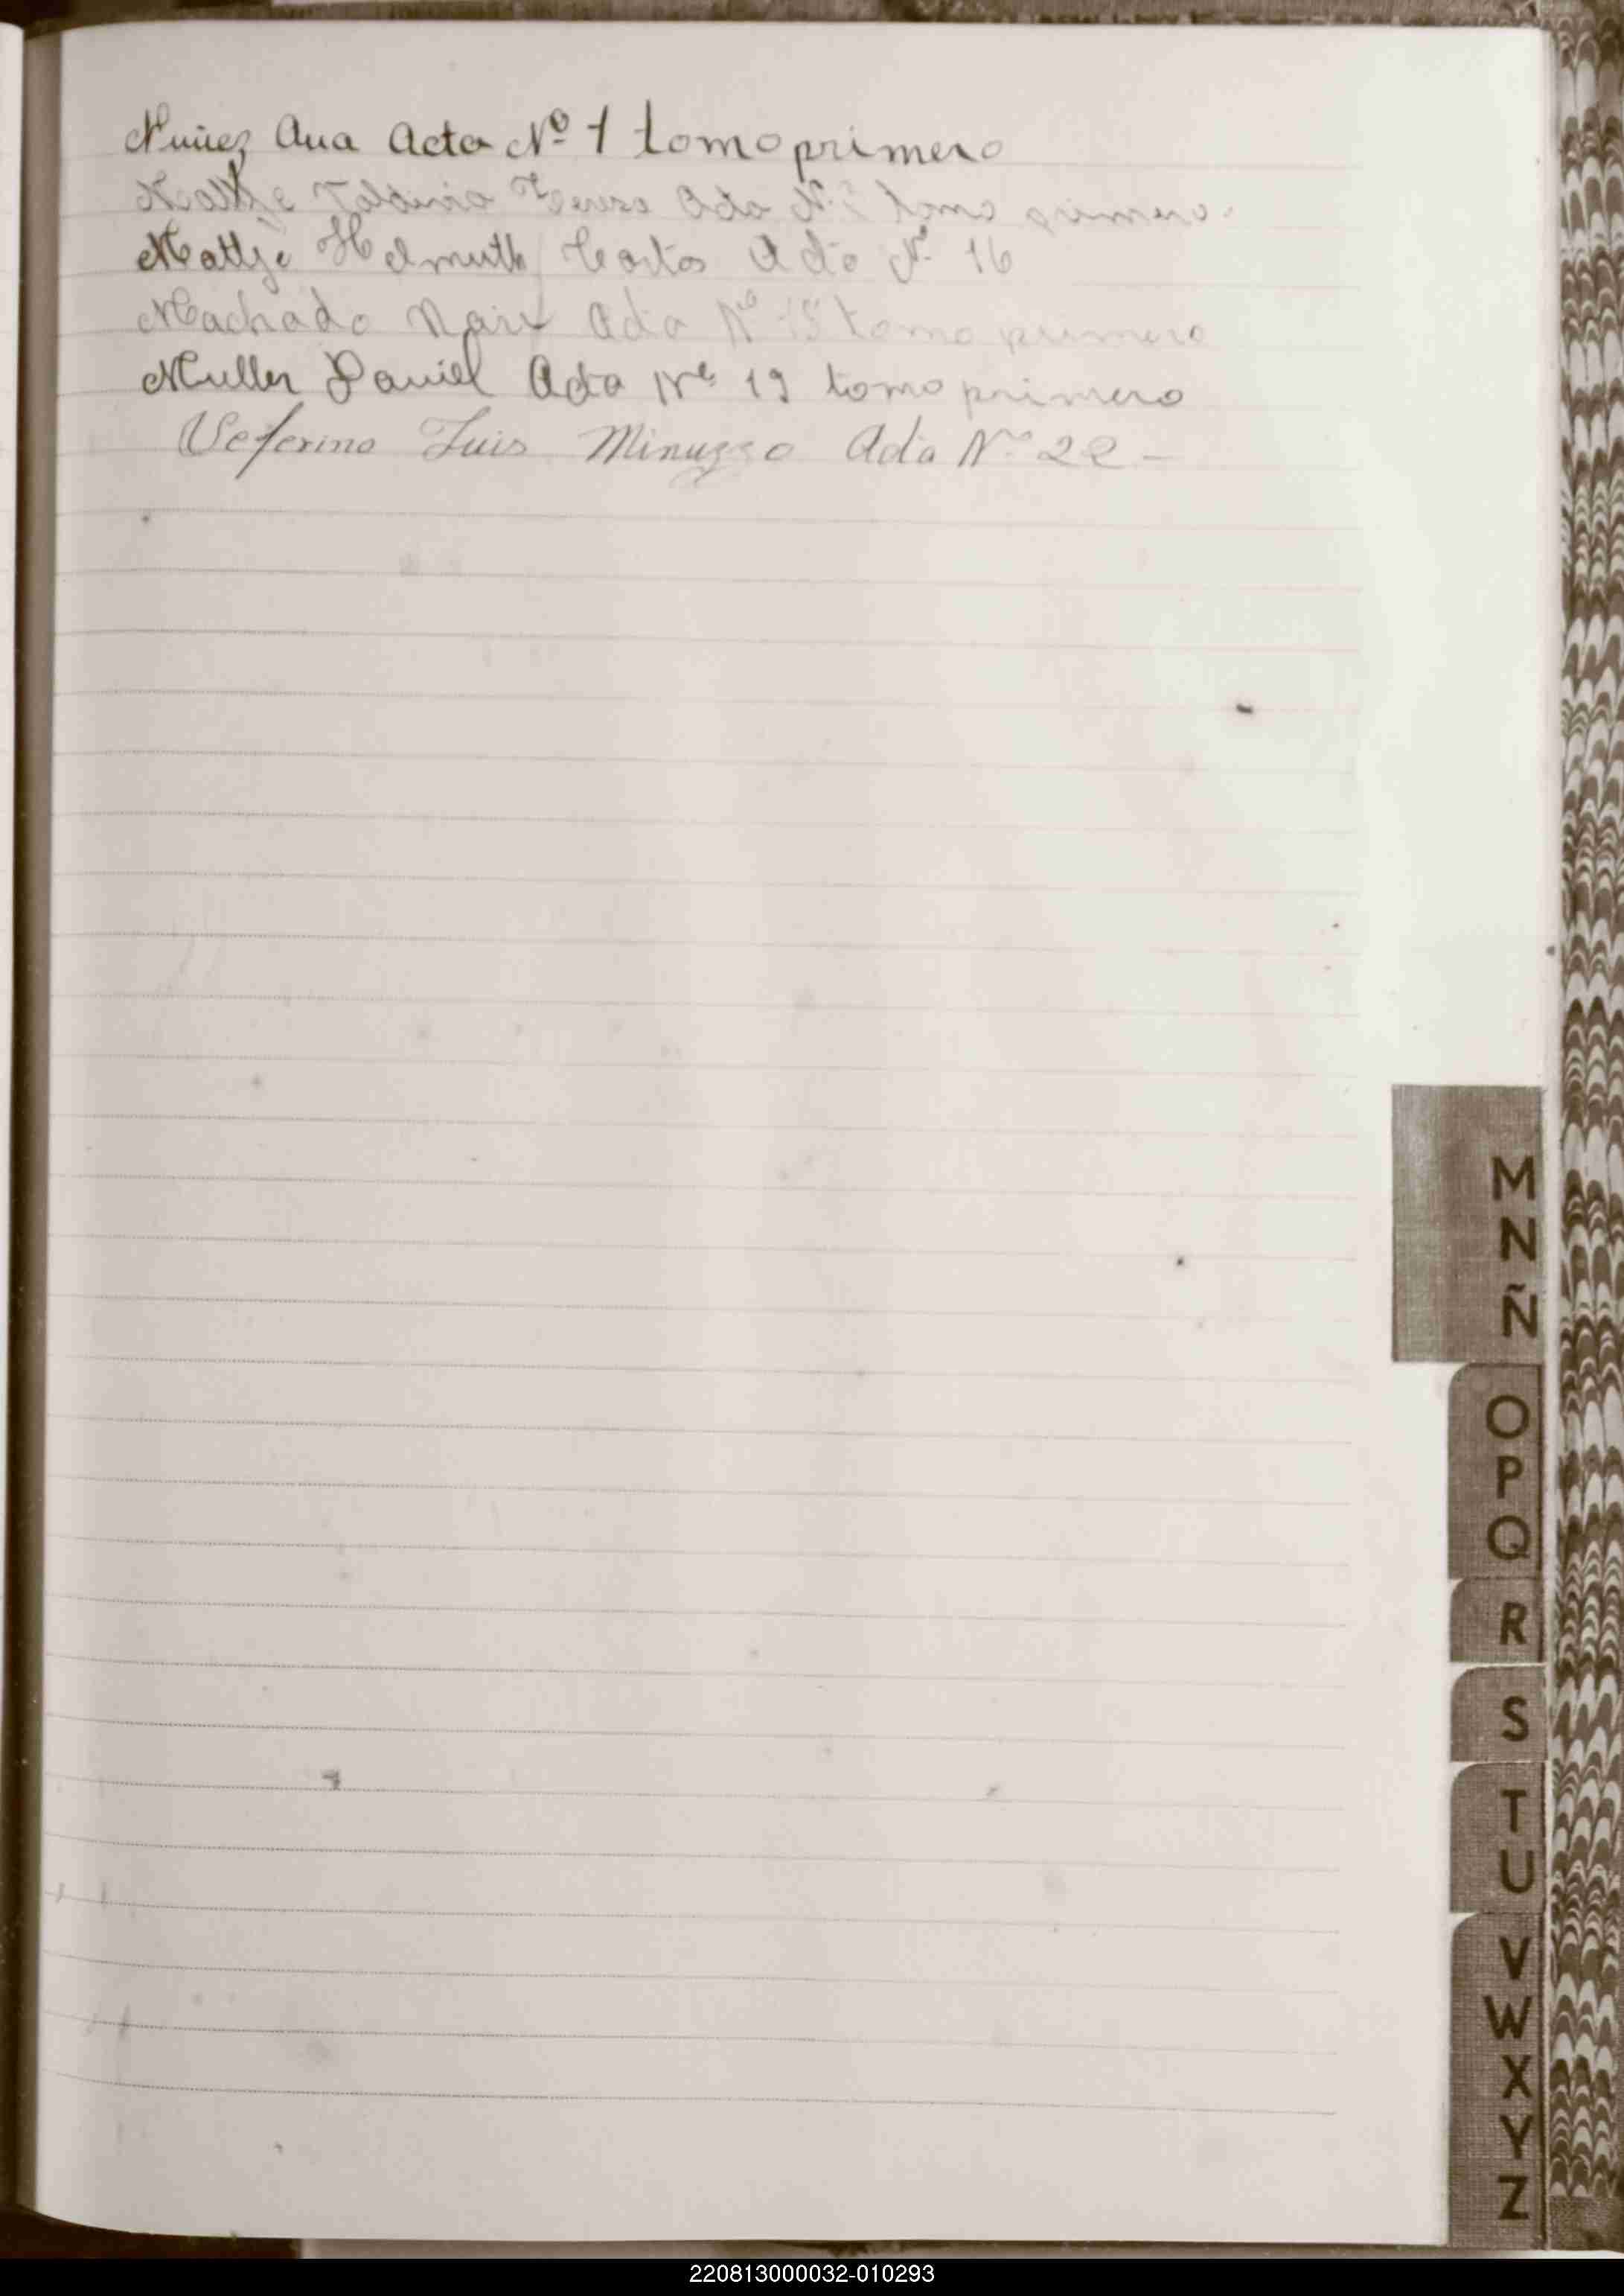 Nuñez Ana Acta Nº 1 tomo primero
Mattje Teresa Acta Nº tomo primero.
Mattje Helmuth Carlos Acta Nº 16
Machado Acta Nº 15 tomo primero
Muller Daniel Acta Nº 19 tomo primero
Ceferino Luis Minuzzo Acta Nº 22 -
M
N
Ñ
O
P
Q
R
S
T
U
V
W
X
Y
Z
220813000032-010293